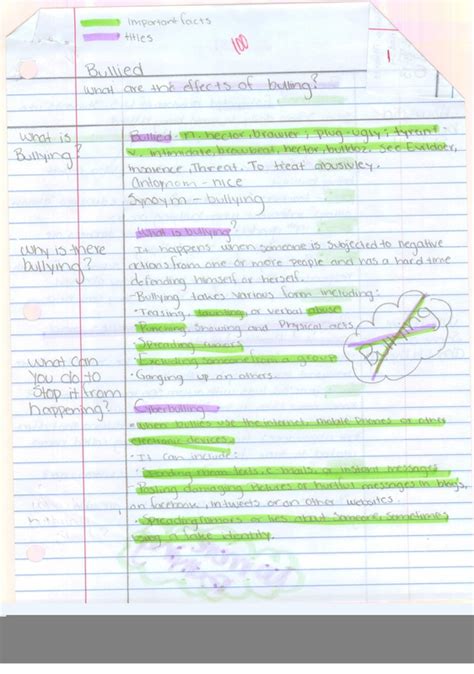 important facts
titles
100
1
Bullied
What are the effects of bulling?
What is
Bullying?
Bullied - n. hector, brawler, plug-ugly, tyrant
v. intimidate, browbeat, hector, bulldoz. See Evildoer,
Insolence, Threat. To treat abusivley.
Antonom - nice
Synoym - bullying
What is bullying?
Why is there
bullying?
It happens when someone is subjected to negative
actions from one or more people and has a hard time
defending himself or herself.
• Bullying takes various form including:
• Teasing, taunting, or verbal abuse
• Punching, Shoving and Physical acts
• Spreading rumors
• Excluding someone from a group
• Ganging up on others.
Bullying
What can
You do to
Stop it from
happening?
Cyberbulling
• When bullies use the internet, mobile phones or other
electronic devices.
• It can include:
• Sending mean texts, e mails, or instant messages
• Posting damaging pictures or hurtful messages in blogs,
on facebook, in tweets or on other websites.
• Spreading rumors or lies about someone sometimes
using a fake identity.